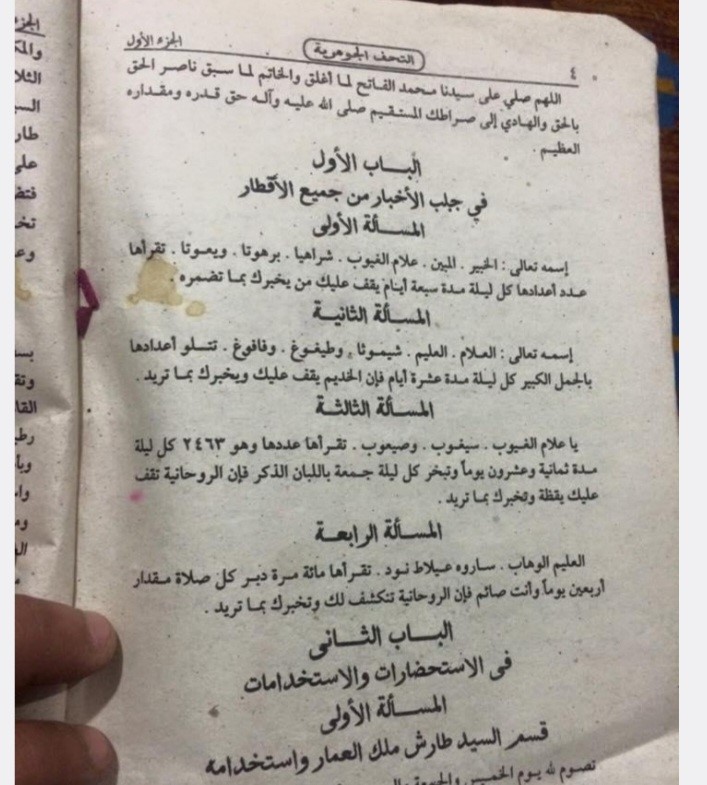 ٤ التحف الجوهرية الجزء الأول
اللهم صلي على سيدنا محمد الفاتح لما أغلق والخاتم لما سبق ناصر الحق
بالحق والهادي إلى صراطك المستقيم صلى الله عليه وآله حق قدره ومقداره
العظيم .
الباب الأول
في جلب الأخبار من جميع الأقطار
المسألة الأولى
إسمه تعالى : الخبير . المبين . علام الغيوب . شراهيا . برهوتا . ويعوتا . تقرأها
عدد أعدادها كل ليلة مدة سبعة أيام يقف عليك من يخبرك بما تضمره .
المسألة الثانية
إسمه تعالى : العلام . العليم . شيموثا . وطيغوغ . وفافوغ . تتلو أعدادها
بالجمل الكبير كل ليلة مدة عشرة أيام فإن الخديم يقف عليك ويخبرك بما تريد .
المسألة الثالثة
يا علام الغيوب . سيغوب . وصيعوب . تقرأها عددها وهو ٢٤٦٣ كل ليلة
مدة ثمانية وعشرون يوماً وتبخر كل ليلة جمعة باللبان الذكر فإن الروحانية تقف
عليك يقظة وتخبرك بما تريد .
المسألة الرابعة
العليم الوهاب . ساروه عيلاط نود . تقرأها مائة مرة دبر كل صلاة مقدار
أربعين يوماً وأنت صائم فإن الروحانية تنكشف لك وتخبرك بما تريد .
الباب الثانى
فى الاستحضارات والاستخدامات
المسألة الأولى
قسم السيد طارش ملك العمار واستخدامه
تصوم لله يوم الخميس والجمعة
الجزء
والمك
الثلا
السـ
طار
على
فتض
تخر
وعـ
بسـ
وتق
القا
رطـ
وبأ
وا
ومـ